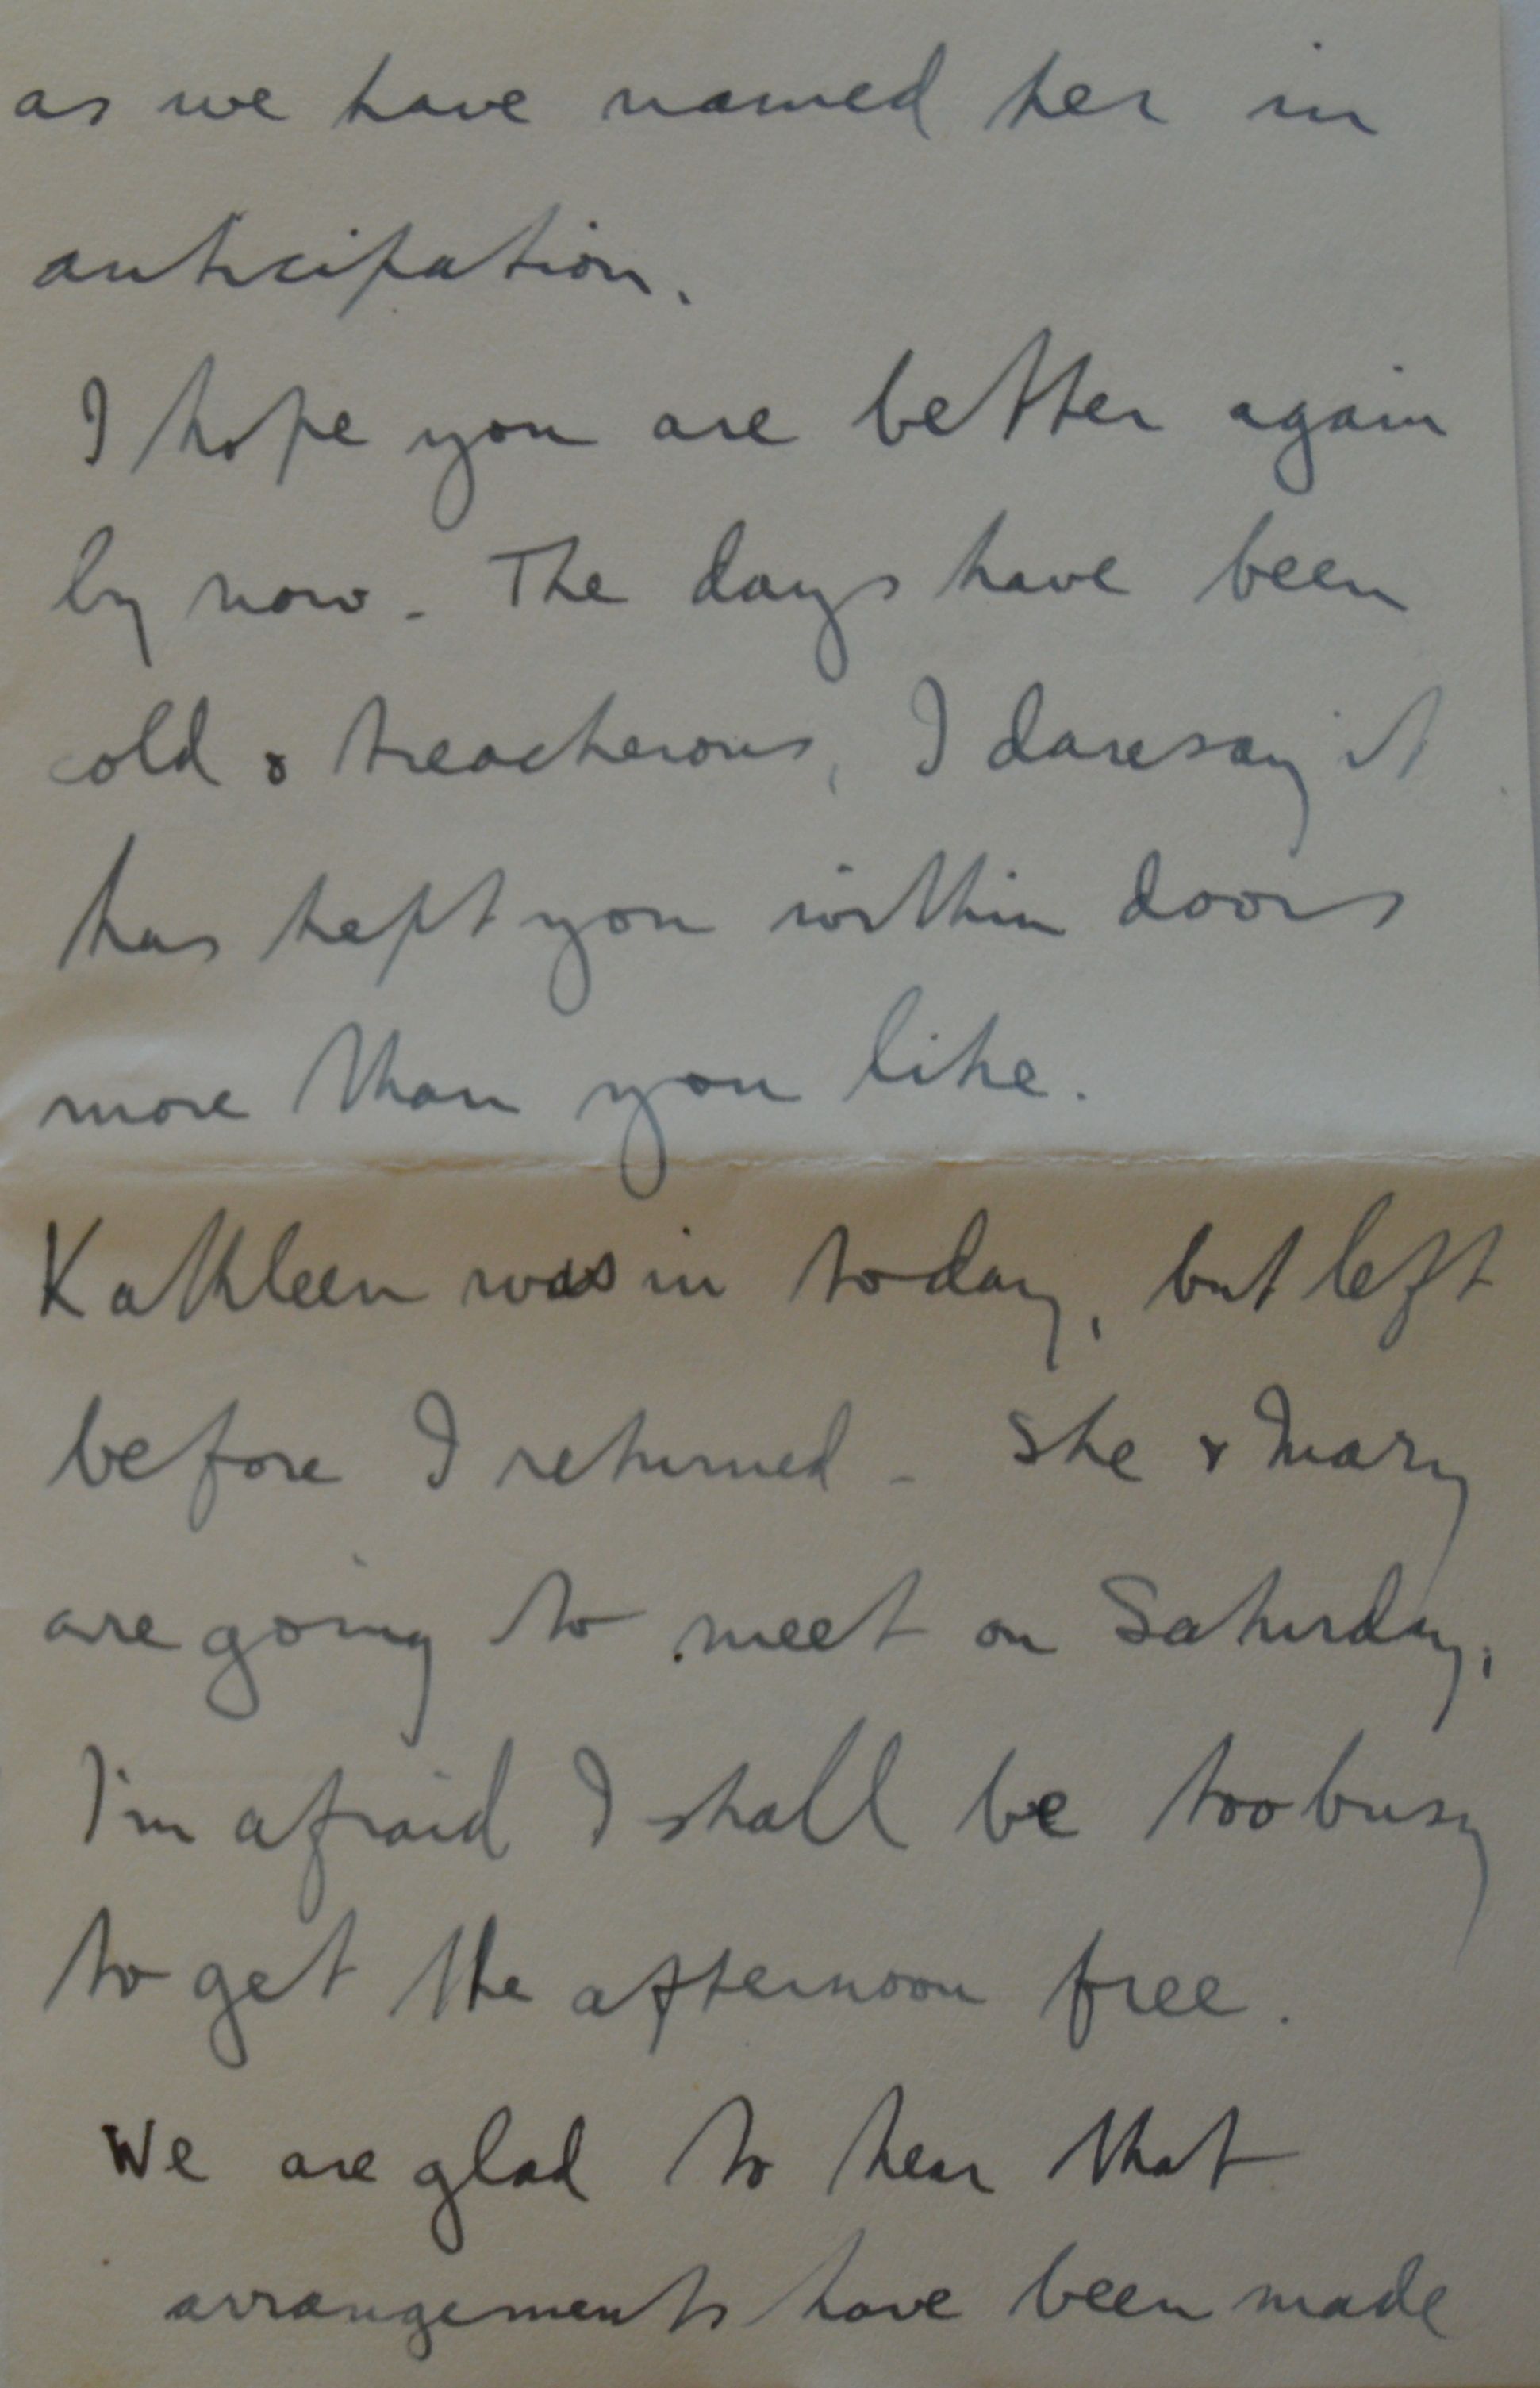 as we have named her in
anticipation.
I hope you are better again
by now. The days have been
cold & treacherous, I daresay it
has kept you within doors
more than you like.
Kathleen was in today, but left
before I returned - She & Mary
are going to meet on Saturday,
I'm afraid I shall be too busy
to get the afternoon free.
We are glad to hear that
arrangements have been made